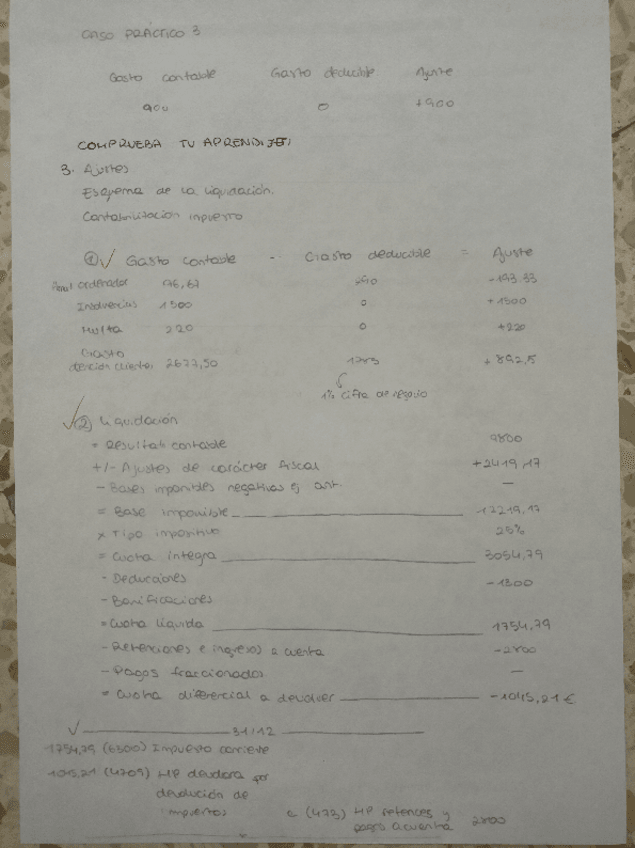 CASO PRÁCTICO 3
Gasto contable Gasto deducible Ajuste
900 0 +900
COMPRUEBA TU APRENDIZAJE
3. Ajustes
Esquema de la liquidación.
Contabilización impuesto
① ✓ Gasto contable - Gasto deducible = Ajuste
ordenador 96,67 290 -193.33
Insolvencias 1500 0 +1500
Multa 220 0 +220
Gasto
atención clientes 2677,50 + 892,5
1% cifra de negocio
✓ ② Liquidación
+ Resultado contable 9800
+/- Ajustes de carácter fiscal +2419,17
- Bases imponibles negativas ej ant. —
= Base imponible 12219,17
x Tipo impositivo 25%
= Cuota íntegra 3054,79
- Deducciones -1300
- Bonificaciones
= Cuota líquida 1754,79
- Retenciones e ingresos a cuenta -2800
- Pagos fraccionados —
= Cuota diferencial a devolver -1045,21 €
✓ 31/12
1754,79 (6300) Impuesto corriente
1045,21 (4709) HP deudora por
devolución de
impuestos a (473) HP retenciones y
pagos a cuenta 2800